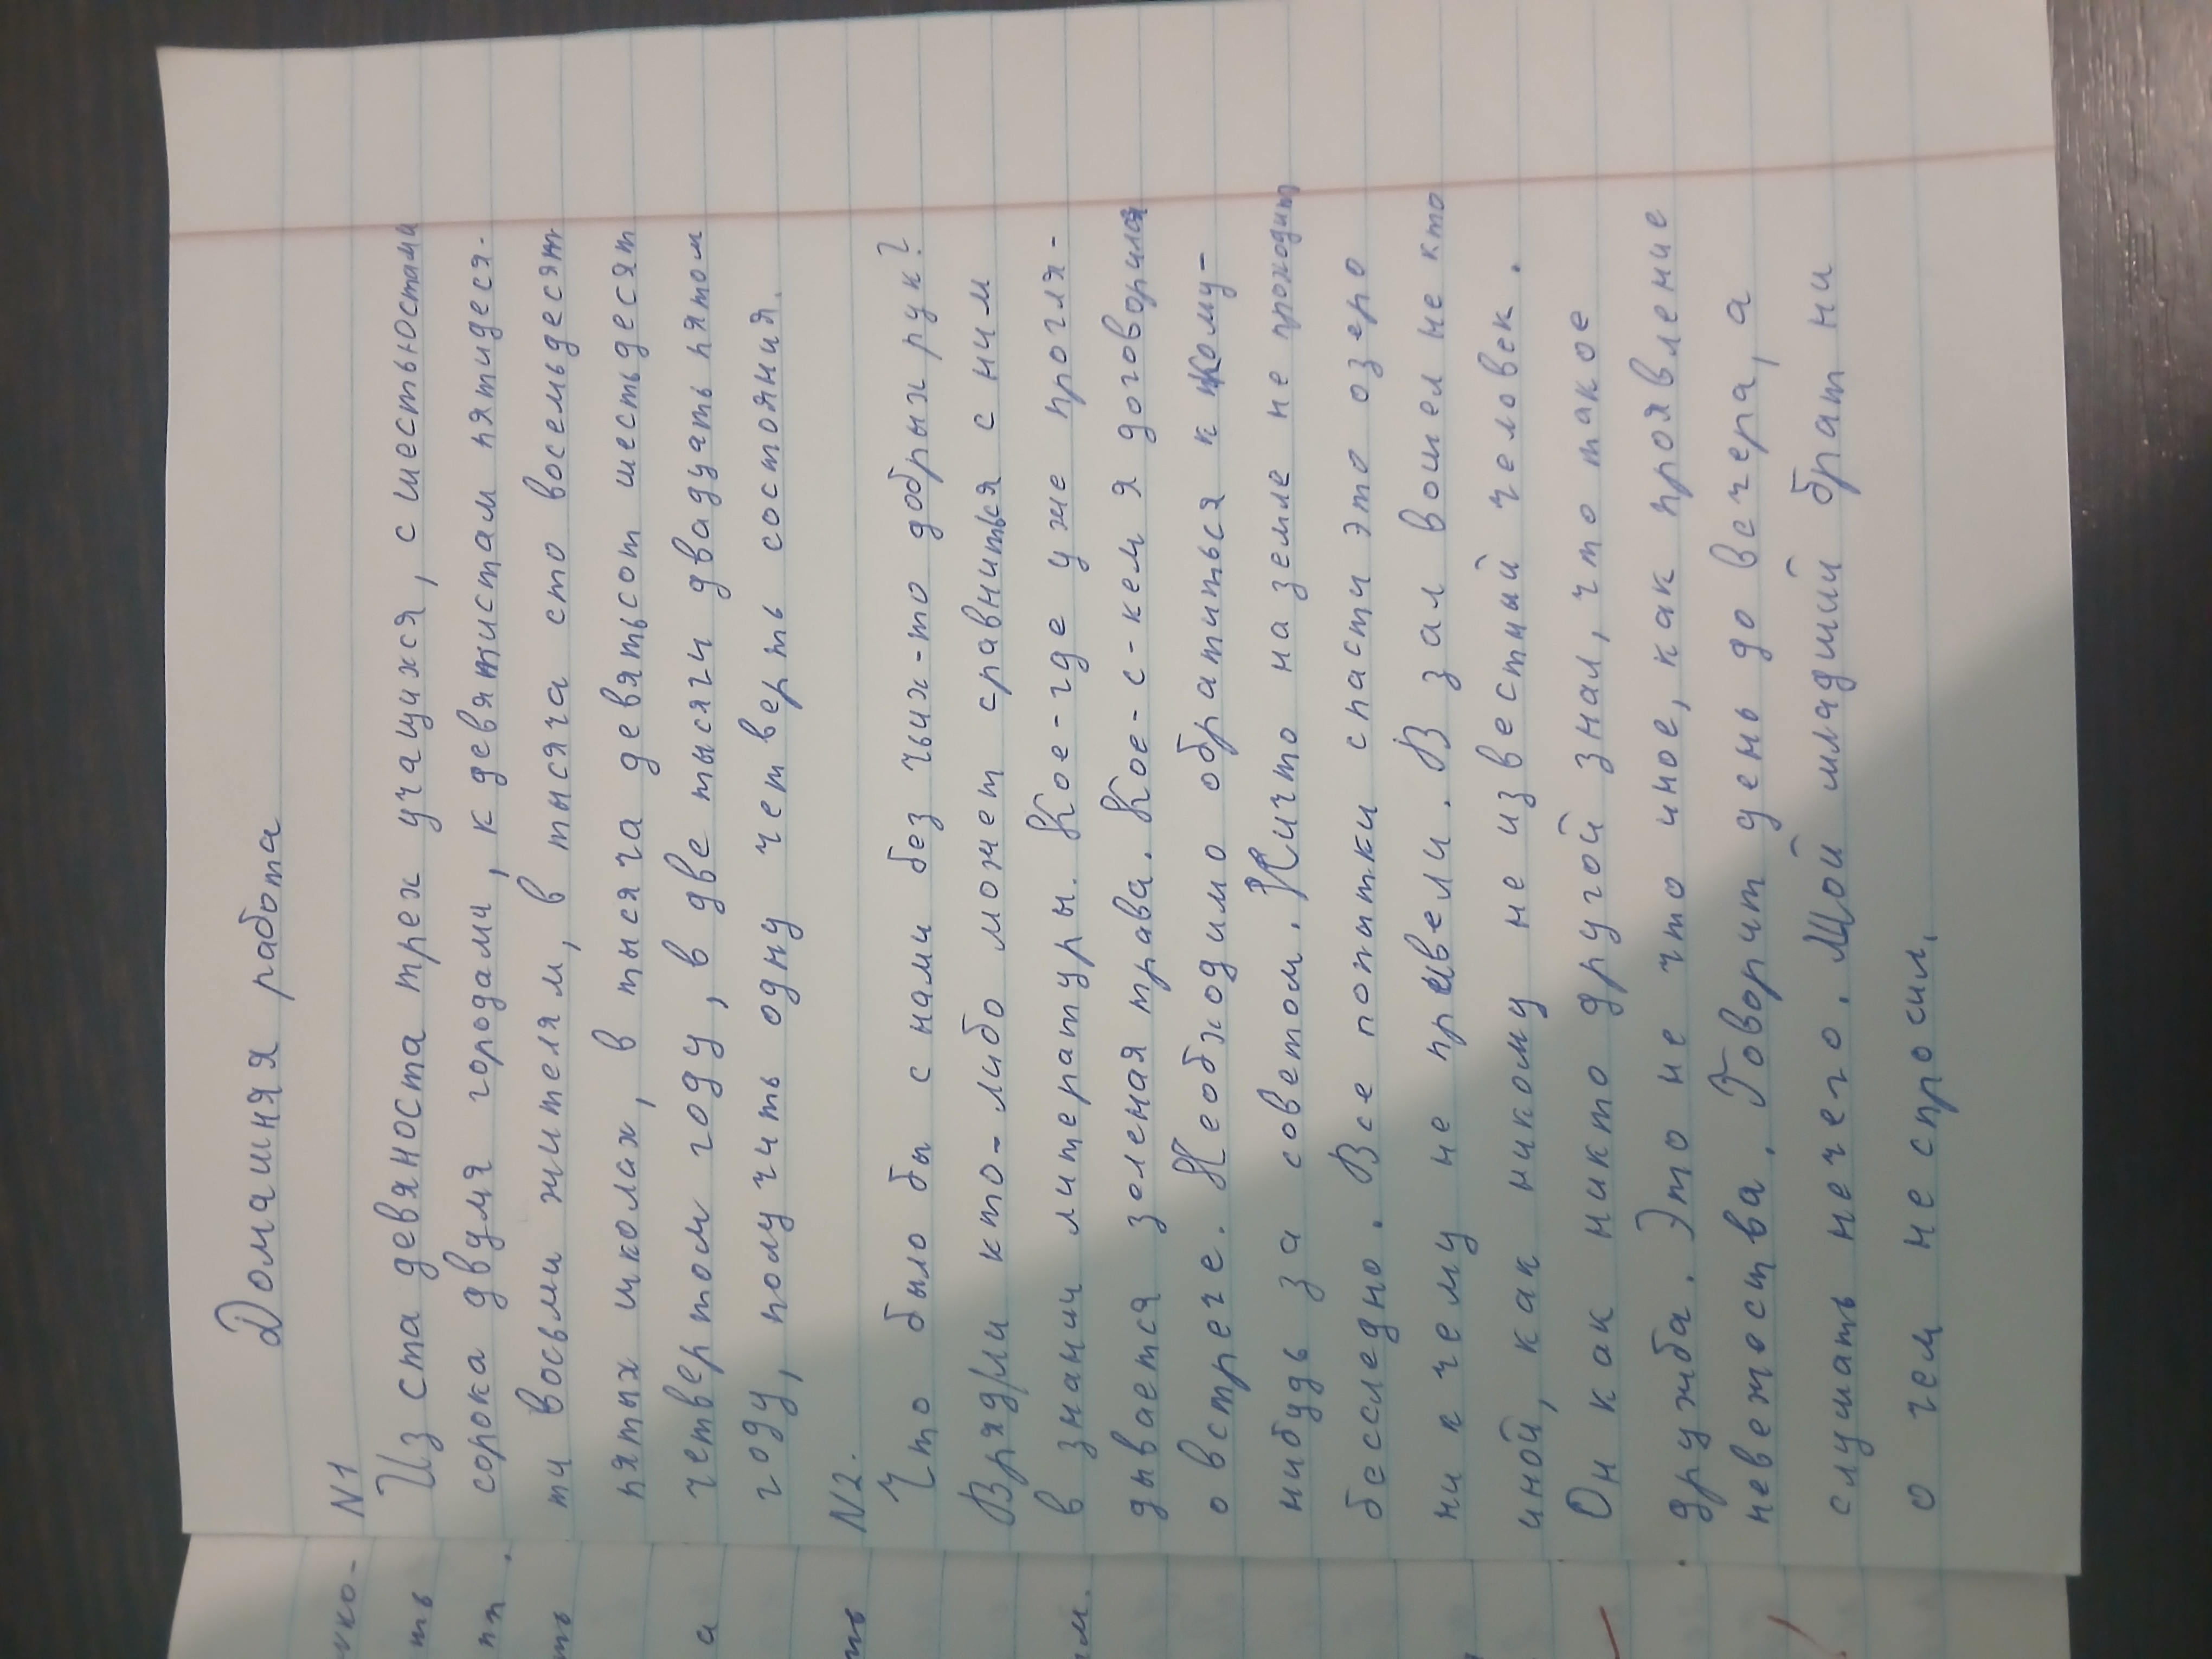 Домашняя работа
N1
Из ста девяноста трех учащихся, с шестьюстами
сорока двумя городами, к девятистам пятидеся-
ти восьми жителям, в тысяча сто восемьдесят
пятых школах, в тысяча девятьсот шестьдесят
четвертом году, в две тысячи двадцать пятом
году, получить одну четверть состояния.
N2.
Что было бы с нами без чьих-то добрых рук?
Врядли кто-либо может сравниться с ним
в знании литературы. Кое-где уже прогля-
дывается зеленая трава. Кое-с-кем я договорился
о встрече. Необходимо обратиться к кому-
нибудь за советом. Ничто на земле не проходит
бесследно. Все попытки спасти это озеро
ни к чему не привели. В зал вошел не кто
иной, как никому не известный человек.
Он как никто другой знал, что такое
дружба. Это не что иное, как проявление
невежества. Говорит день до вечера, а
слушать нечего. Мой младший брат ни
о чем не спросил.
нко-
ть
пл,
ть
а
ть
м.